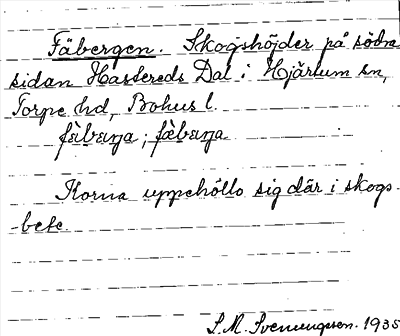 Fäbergen. Skogshöjder på södra
sidan Hastereds Dal i Hjärtum sn,
Torpe hd, Bohus l.
fäbæŋa; fæ̀bæŋa
Korna uppehöllo sig där i skogs-
-bete
S. M. Svenungsen. 1935